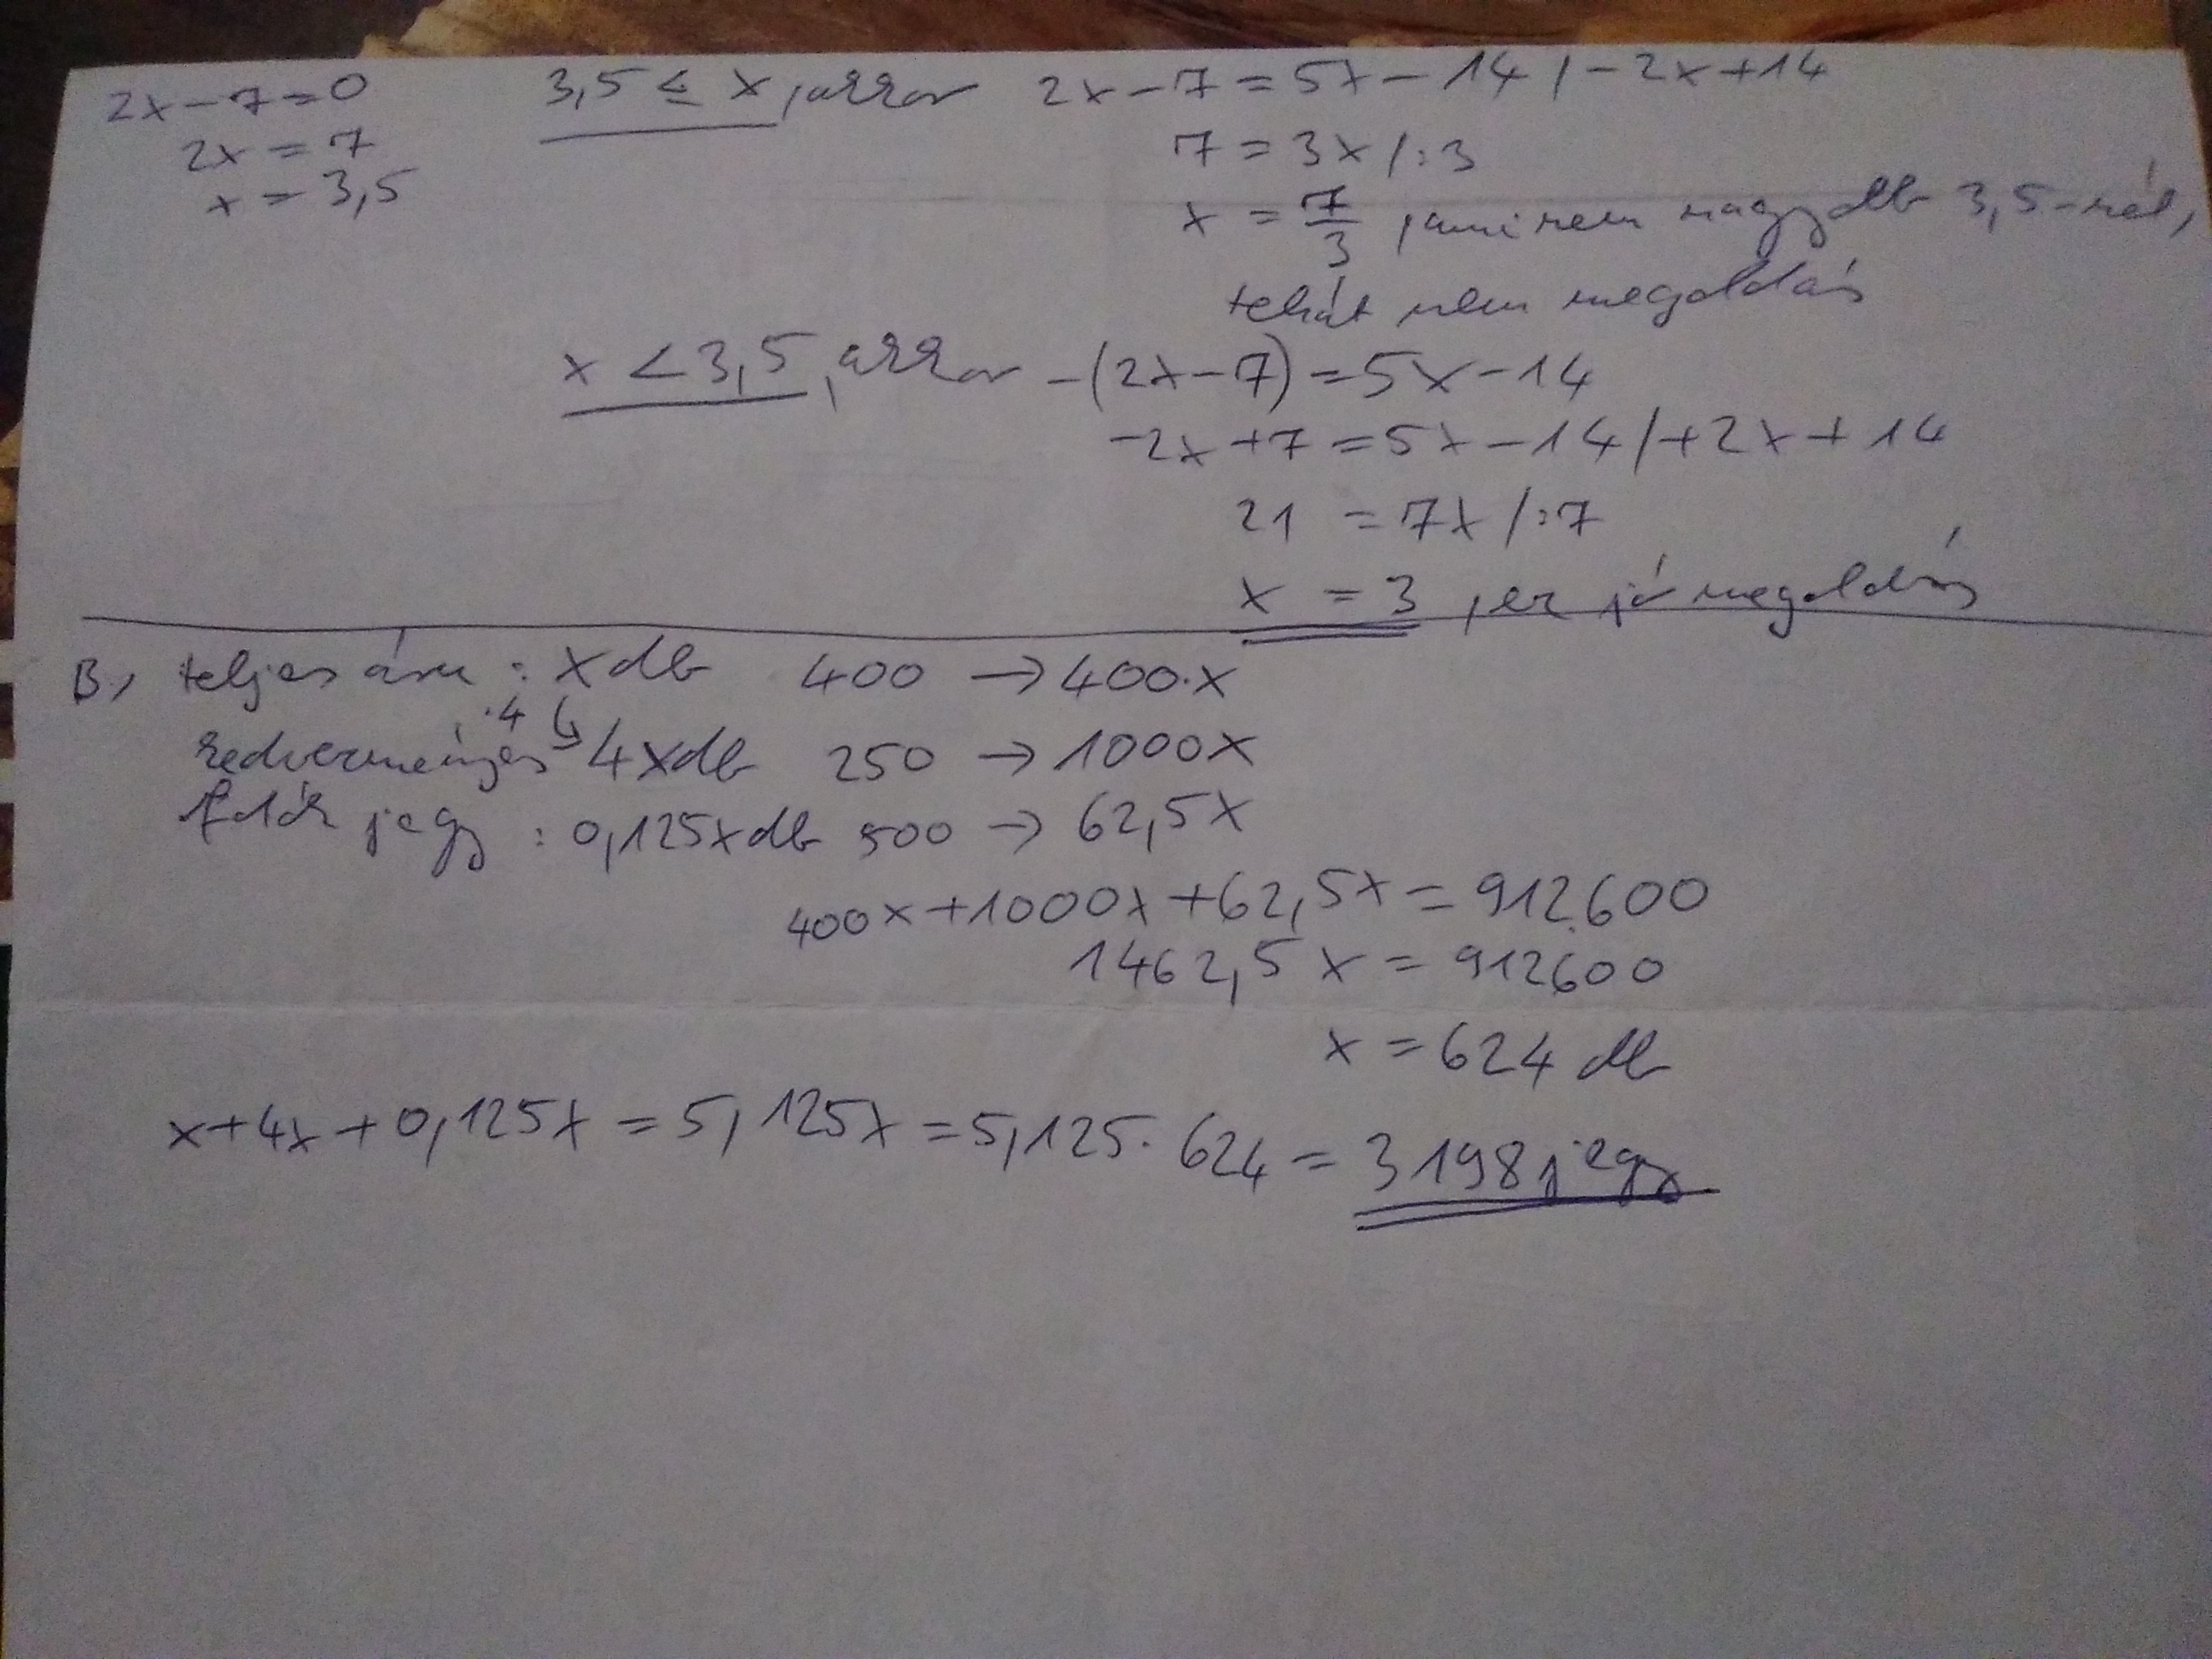 2x-7=0
2x = 7
x = 3,5
3,5 ≤ x, akkor 2x-7=5x-14 /-2x+14
7 = 3x /:3
x = 7/3, ami nem nagyobb 3,5-nél,
tehát nem megoldás
x < 3,5, akkor -(2x-7)=5x-14
-2x+7=5x-14 /+2x+14
21 = 7x /:7
x = 3, ez jó megoldás
B, teljes áru : x db 400 → 400·x
·4
kedvezményes 4x db 250 → 1000x
jegy : 0,125x db 500 → 62,5x
400x+1000x+62,5x=912.600
1462,5x=912600
x=624 db
x+4x+0,125x=5,125x=5,125·624=3198 jegy